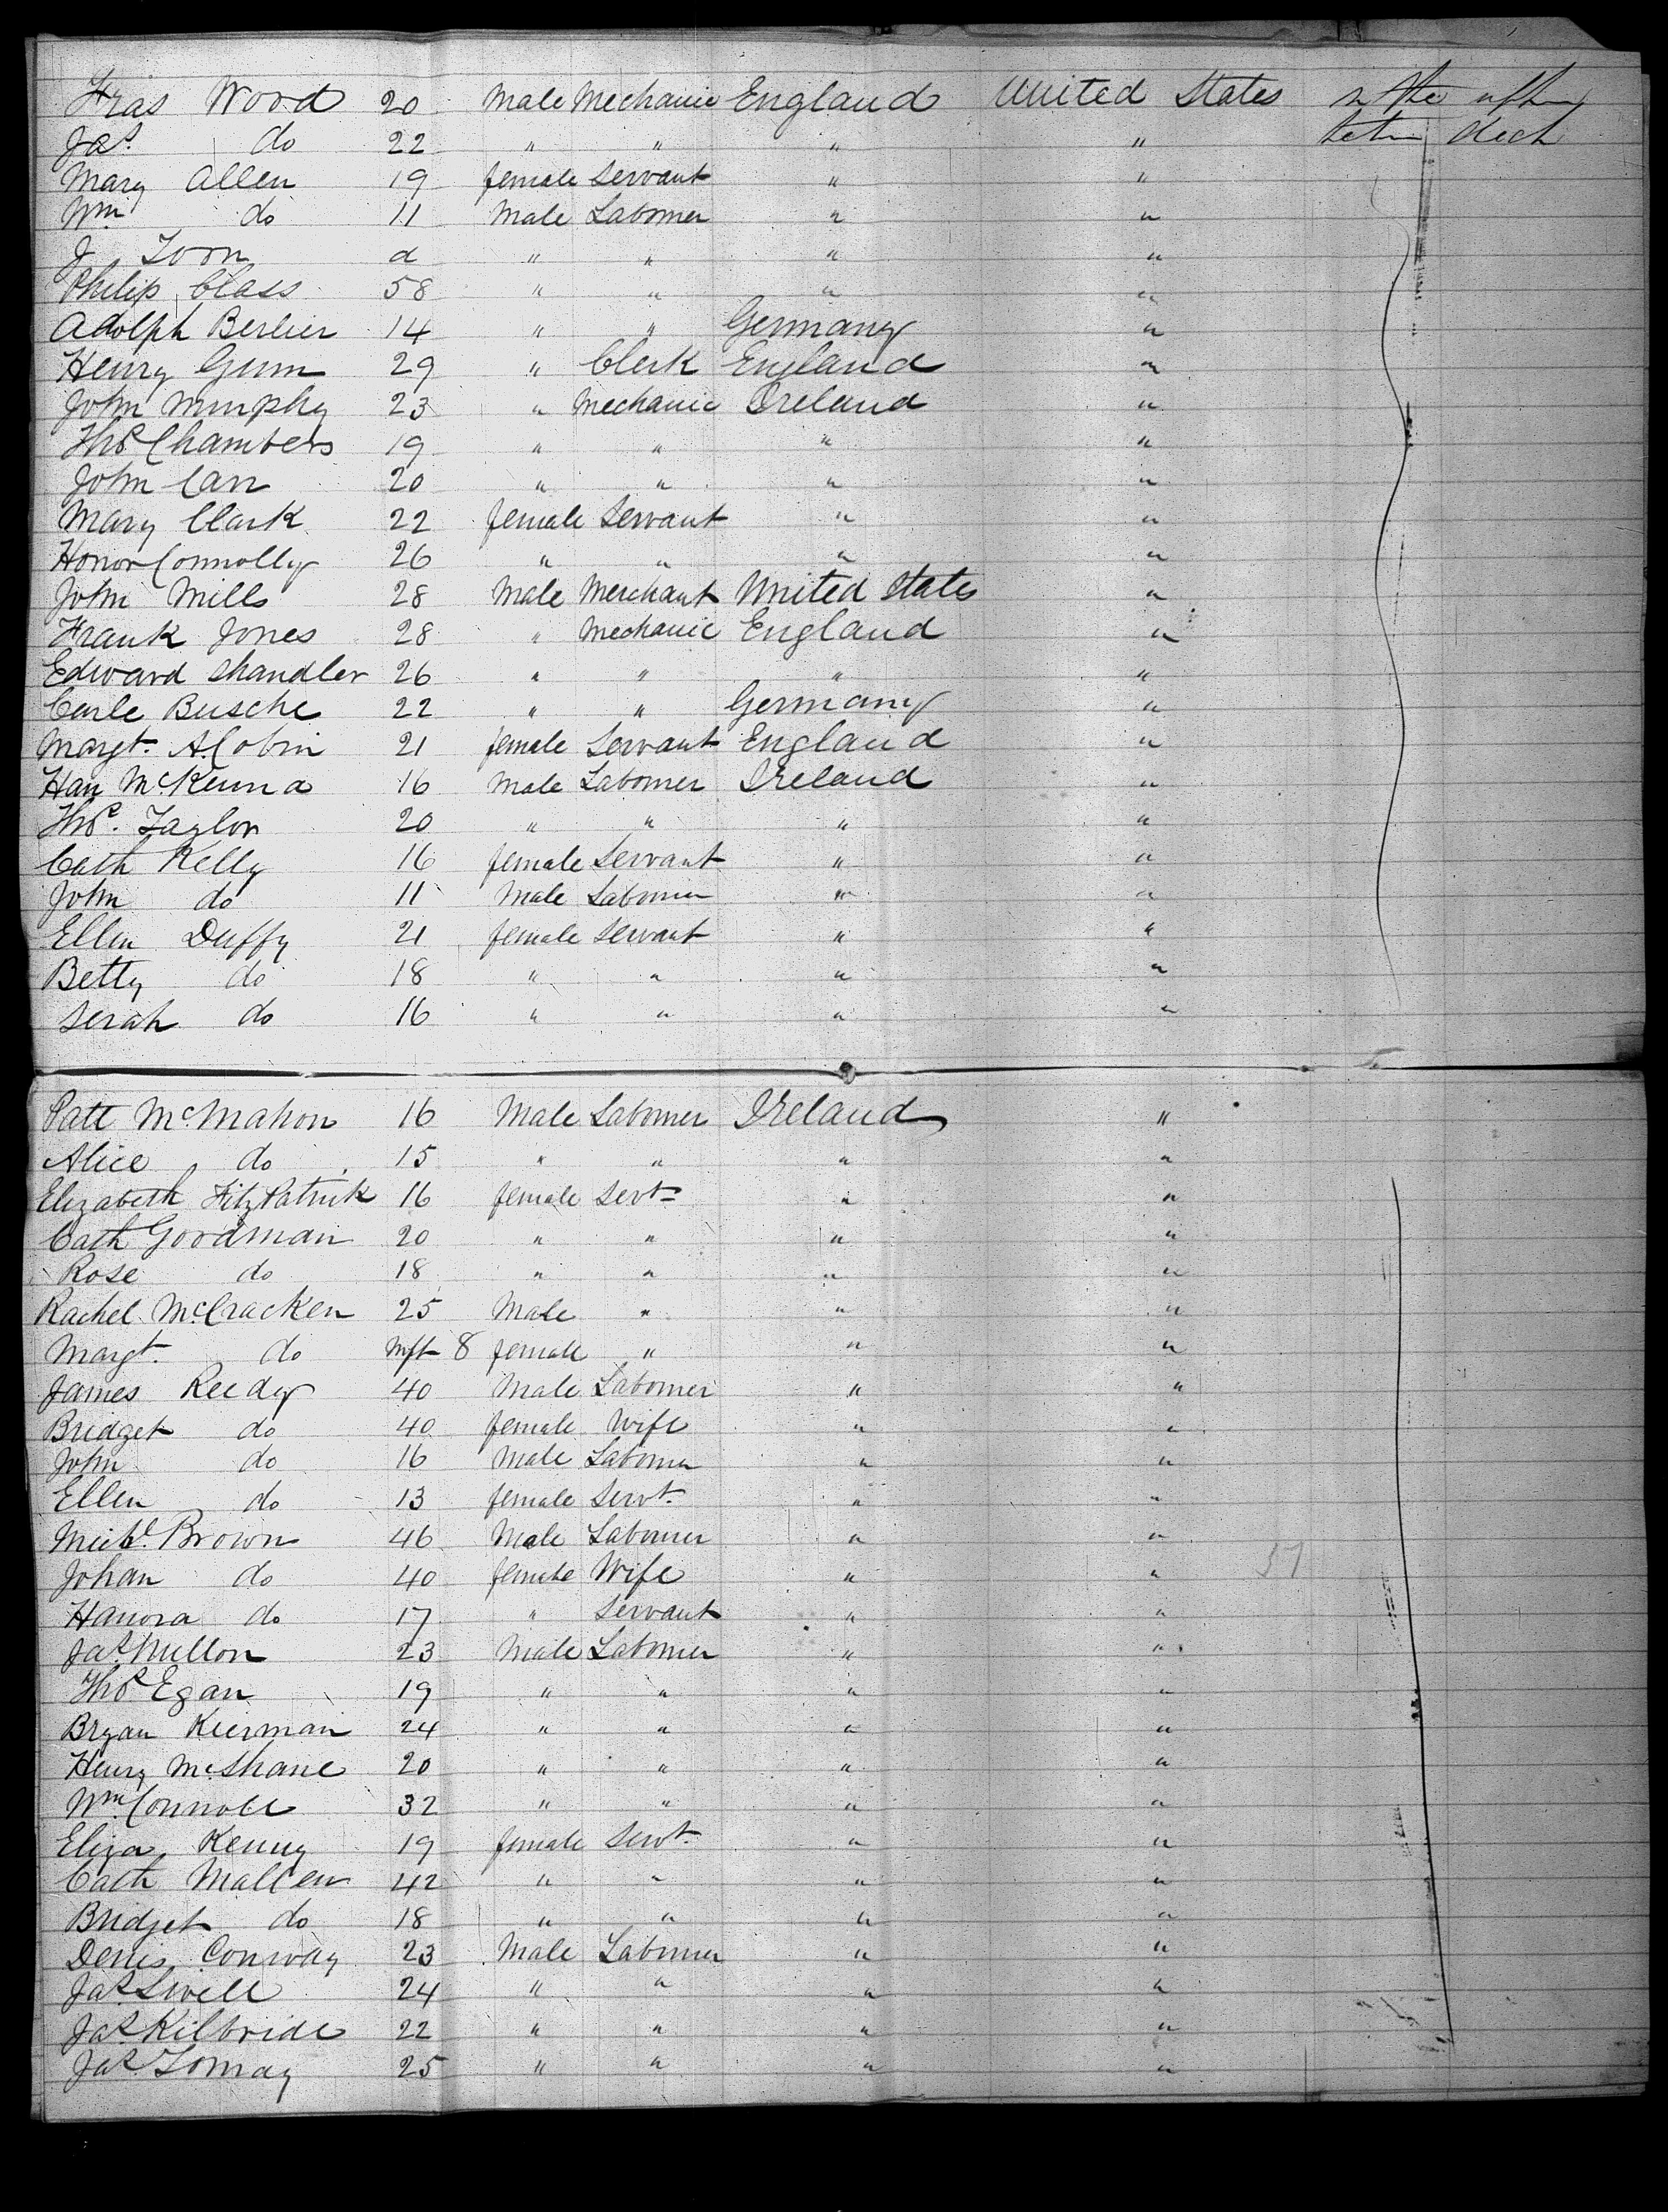 Fras Wood 20 Male Mechanic England United States in the upper
Jas. do 22 " " " " between deck
Mary Allen 19 female Servant " "
Wm. do 11 Male Labomer " "
J Toon a " " " "
Philip Class 58 " " " "
Adolph Berlier 14 " " Germany "
Henry Gunn 29 " Clerk England "
John Murphy 23 " Mechanic Ireland "
Thos Chambers 19 " " " "
John Carr 20 " " " "
Mary Clark 22 female Servant " "
Honor Connolly 26 " " " "
John Mills 28 Male Merchant United States "
Frank Jones 28 " Mechanic England "
Edward Shandler 26 " " " "
Carle Busche 22 " " Germany "
Margt. A. Cobin 21 female Servant England "
Han McKenna 16 Male Labomer Ireland "
Thos. Taylor 20 " " " "
Cath Kelly 16 female Servant " "
John do 11 Male Labomer " "
Ellen Duffy 21 female Servant " "
Betty do 18 " " " "
Serah do 16 " " " "
Patt McMahon 16 Male Labomer Ireland "
Alice do 15 " " " "
Elizabeth FitzPatrick 16 female Servt " "
Cath Goodman 20 " " " "
Rose do 18 " " " "
Rachel McCracken 25 Male " " "
Margt. do 8 female " " "
James Reedy 40 Male Labomer " "
Bridget do 40 female Wife " "
John do 16 Male Labomer " "
Ellen do 13 female Servt. " "
Michl. Brown 46 Male Labomer " "
Johan do 40 female Wife " " 37
Hanora do 17 " Servant " "
Jas. Nullon 23 Male Labomer " "
Thos Egan 19 " " " "
Bryan Kierman 24 " " " "
Henry McShane 20 " " " "
Wm. Connole 32 " " " "
Eliza Kenny 19 female Servt. " "
Cath Mallen 42 " " " "
Bridget do 18 " " " "
Denis Conway 23 Male Labomer " "
Jas. 24 " " " "
Jas. Kilbride 22 " " " "
Jas. Tomay 25 " " " "